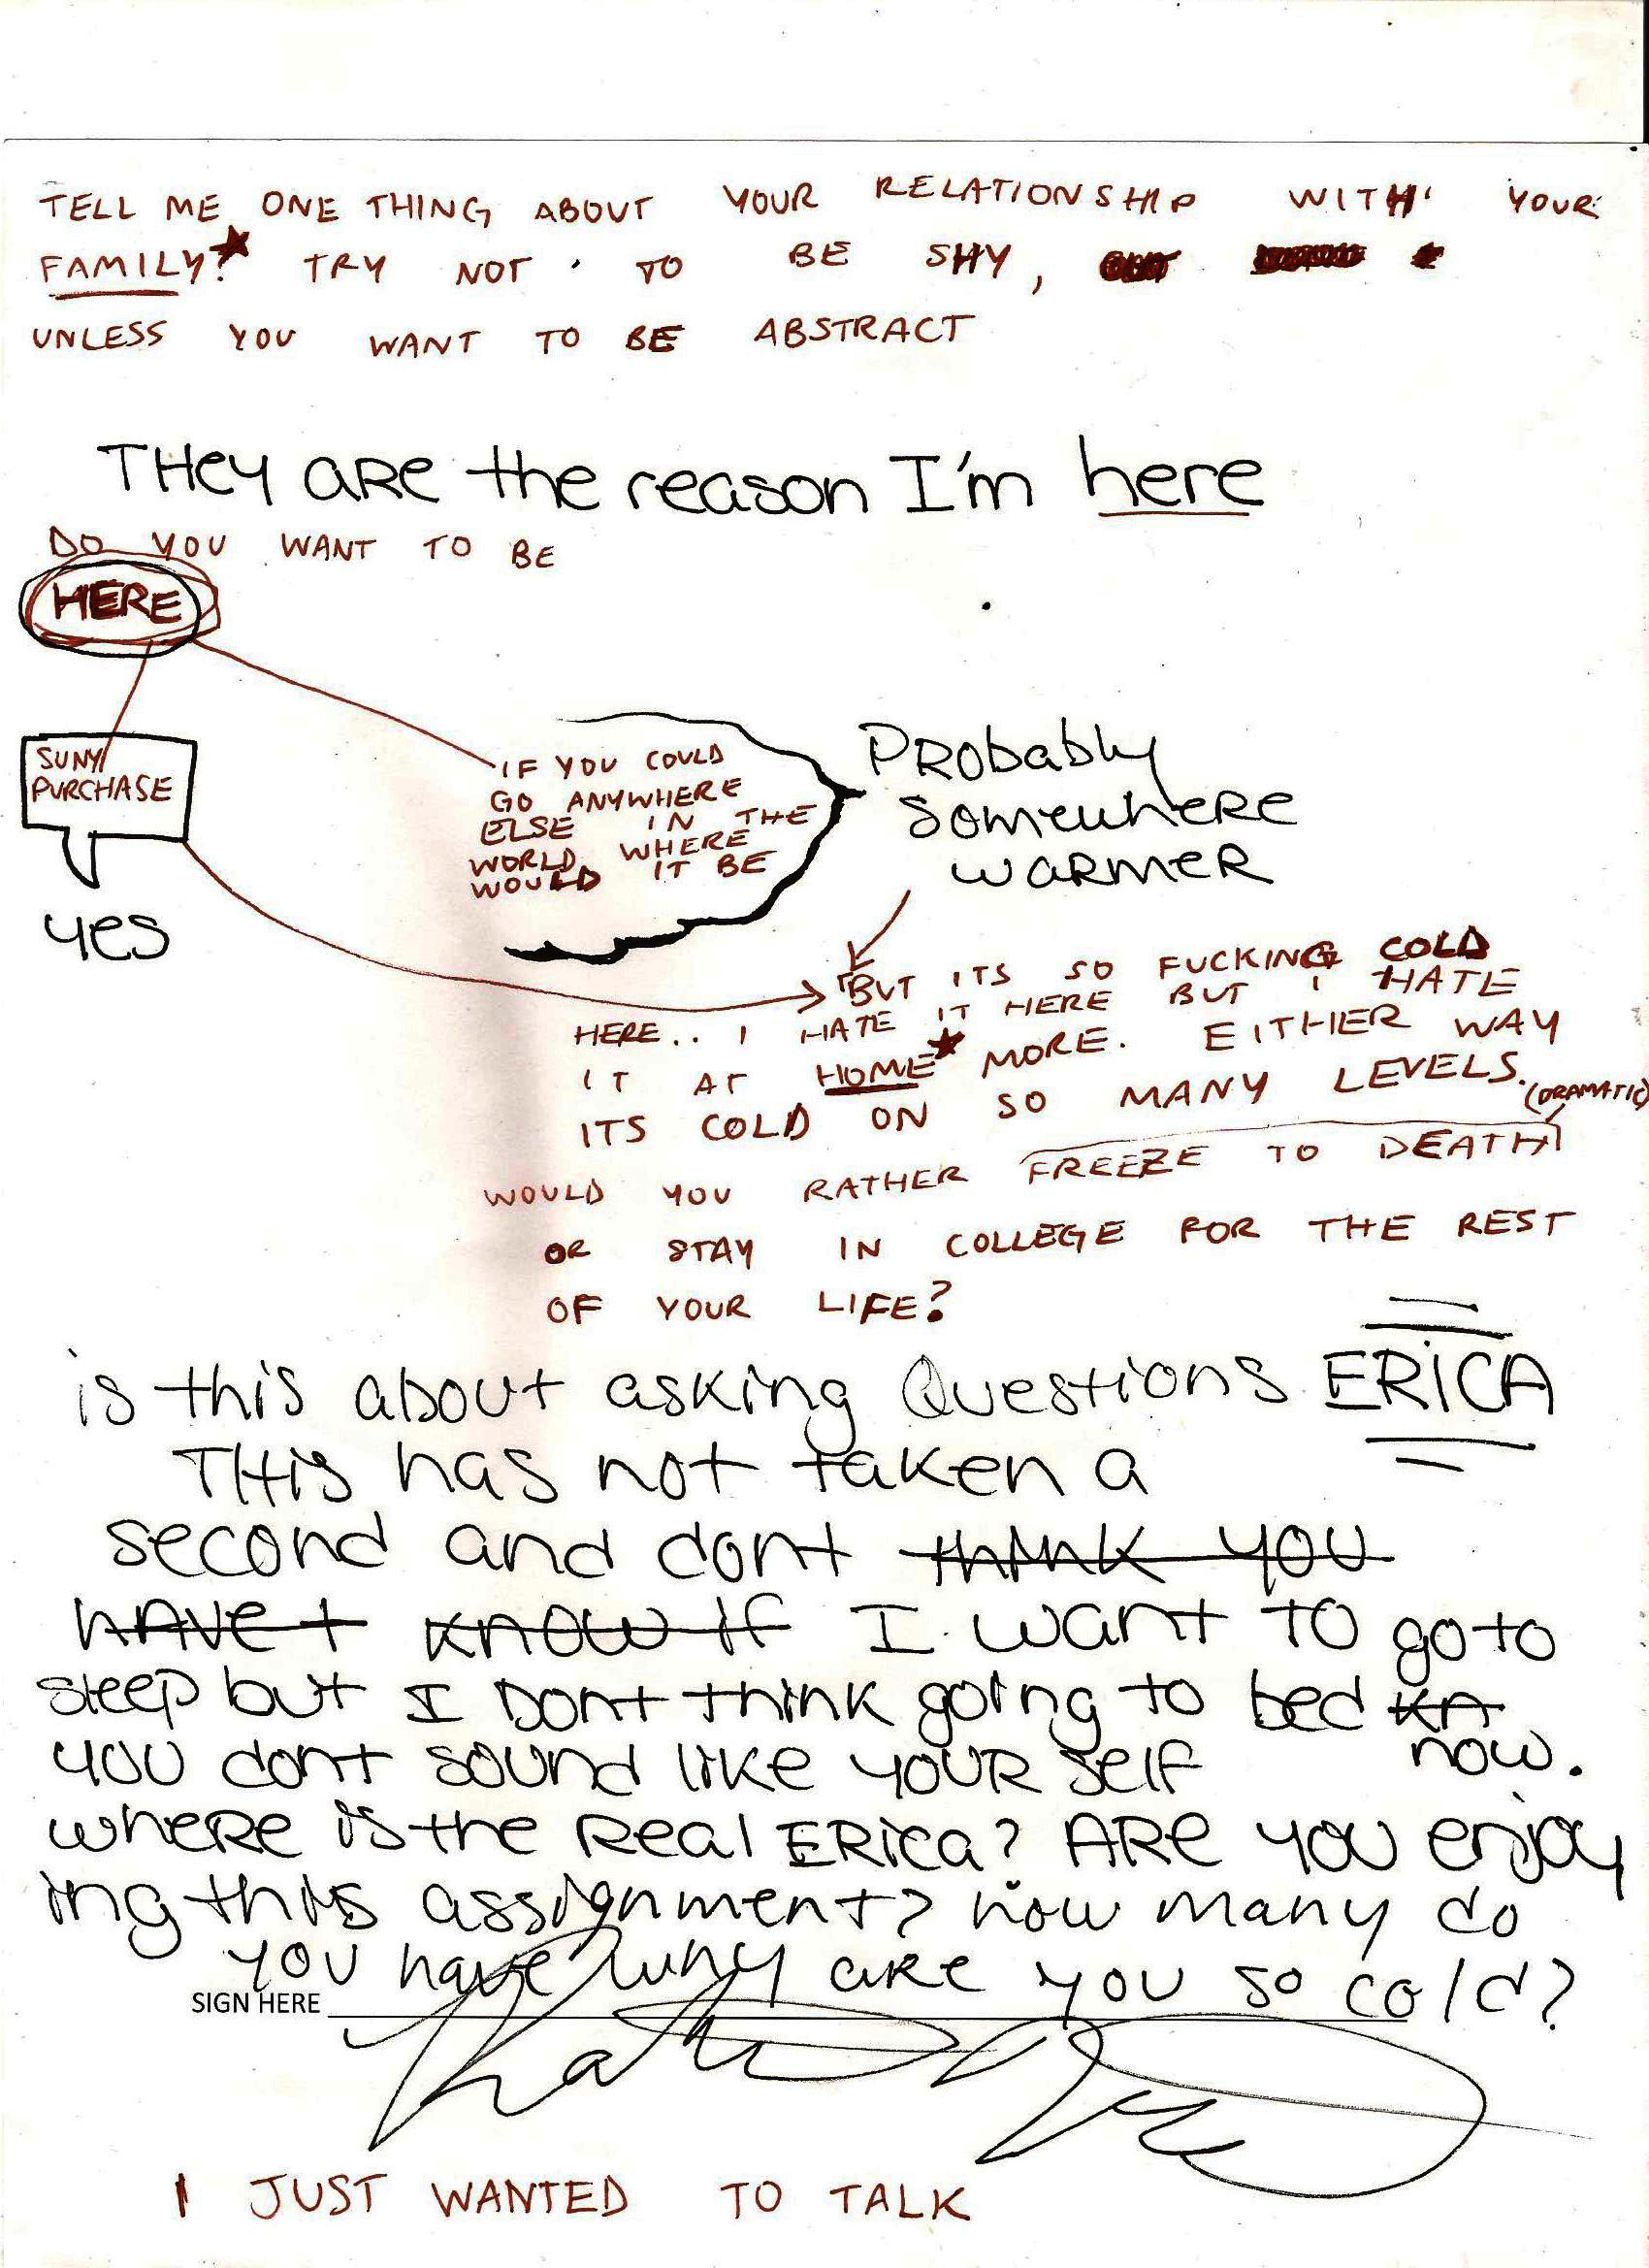 TELL ME ONE THING ABOUT YOUR RELATIONSHIP WITH YOUR
FAMILY?★ TRY NOT TO BE SHY,
UNLESS YOU WANT TO BE ABSTRACT
THEY ARE the reason I'm here
DO YOU WANT TO BE
HERE
SUNY
PURCHASE
yes
IF YOU COULD
GO ANYWHERE
ELSE IN THE
WORLD WHERE
WOULD IT BE
PRobably
Somewhere
waRmeR
BUT ITS SO FUCKING COLD
HERE.. I HATE IT HERE BUT I HATE
IT AT HOME★ MORE. EITHER WAY
ITS COLD ON SO MANY LEVELS.
(DRAMATIC)
WOULD YOU RATHER FREEZE TO DEATH
OR STAY IN COLLEGE FOR THE REST
OF YOUR LIFE?
is this about asking Questions ERiCA
THis has not taken a
second and dont think you
HAVE t know if I want TO go to
sleep but I Dont think going to bed KA
now.
you dont sound like YOURself
wheRe is the Real ERica? ARe you enjoy
ing this assignment? how many do
you have why aRe you so cold?
SIGN HERE
I JUST WANTED TO TALK